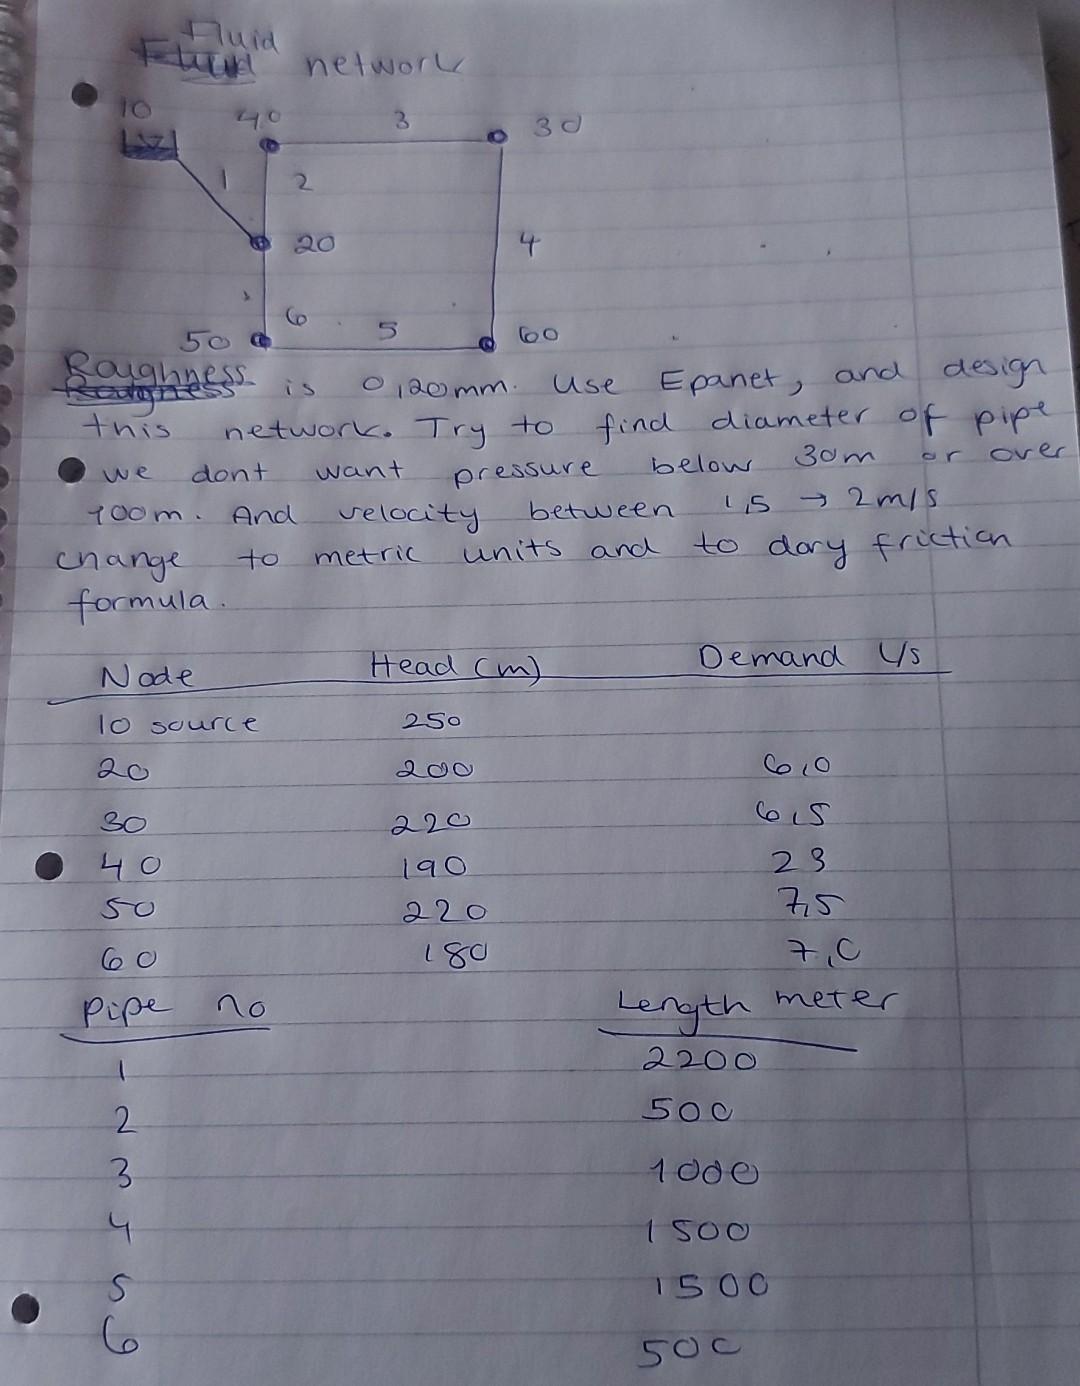 Fluid
network
10
40
3
30
1
2
20
4
6
50
5
60
Roughness is 0,20mm. Use Epanet, and design
this network. Try to find diameter of pipe
we dont want pressure below 30m or over
100m. And velocity between 1,5 → 2m/s
change to metric units and to dary friction
formula.
Node Head (m) Demand L/s
10 source 250
20 200 6,0
30 220 6,5
40 190 23
50 220 7,5
60 180 7,0
Pipe no Length meter
1 2200
2 500
3 1000
4 1500
5 1500
6 500